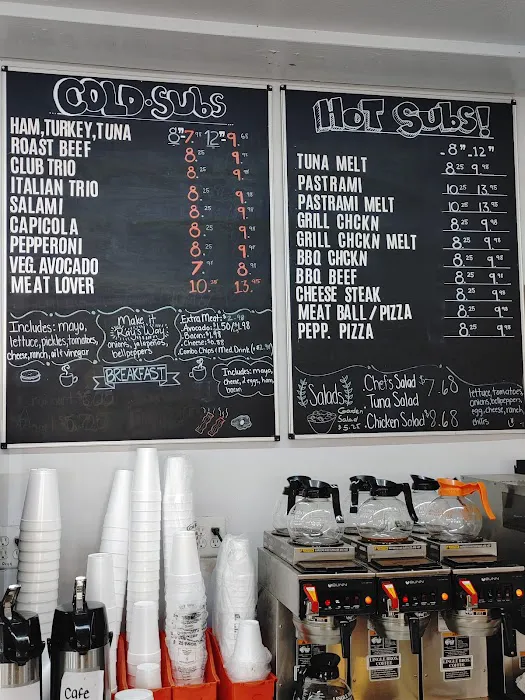 COLD·SUBS
8" 12"
HAM,TURKEY,TUNA 7.98 9.68
ROAST BEEF 8.25 9.98
CLUB TRIO 8.25 9.98
ITALIAN TRIO 8.25 9.98
SALAMI 8.25 9.98
CAPICOLA 8.25 9.98
PEPPERONI 8.25 9.98
VEG. AVOCADO 7.98 8.98
MEAT LOVER 10.25 13.95
Includes: mayo,
lettuce, pickles, tomatoes,
cheese, ranch, oil & vinegar
Make it
Cay's Way
onions, jalapeños,
bellpeppers
Extra Meat:
Avocado:
Bacon:
Cheese: $0.88
Combo Chips & Med. Drink
BREAKFAST
Includes: mayo,
cheese, 2 eggs, ham,
bacon
HOT SUBS!
8" 12"
TUNA MELT 8.25 9.98
PASTRAMI 10.25 13.95
PASTRAMI MELT 10.25 13.95
GRILL CHCKN 8.25 9.98
GRILL CHCKN MELT 8.25 9.98
BBQ CHCKN 8.25 9.98
BBQ BEEF 8.25 9.98
CHEESE STEAK 8.25 9.98
MEAT BALL / PIZZA 8.25 9.98
PEPP. PIZZA 8.25 9.98
Salads
Garden
Salad
$5.25
Chef's Salad $7.68
Tuna Salad
Chicken Salad $8.68
lettuce, tomatoes,
onions, bellpeppers,
egg, cheese, ranch,
chilies
BUNN
BUNN
BUNN
LINGLE BROS.
COFFEE
LINGLE BROS.
COFFEE
Cafe